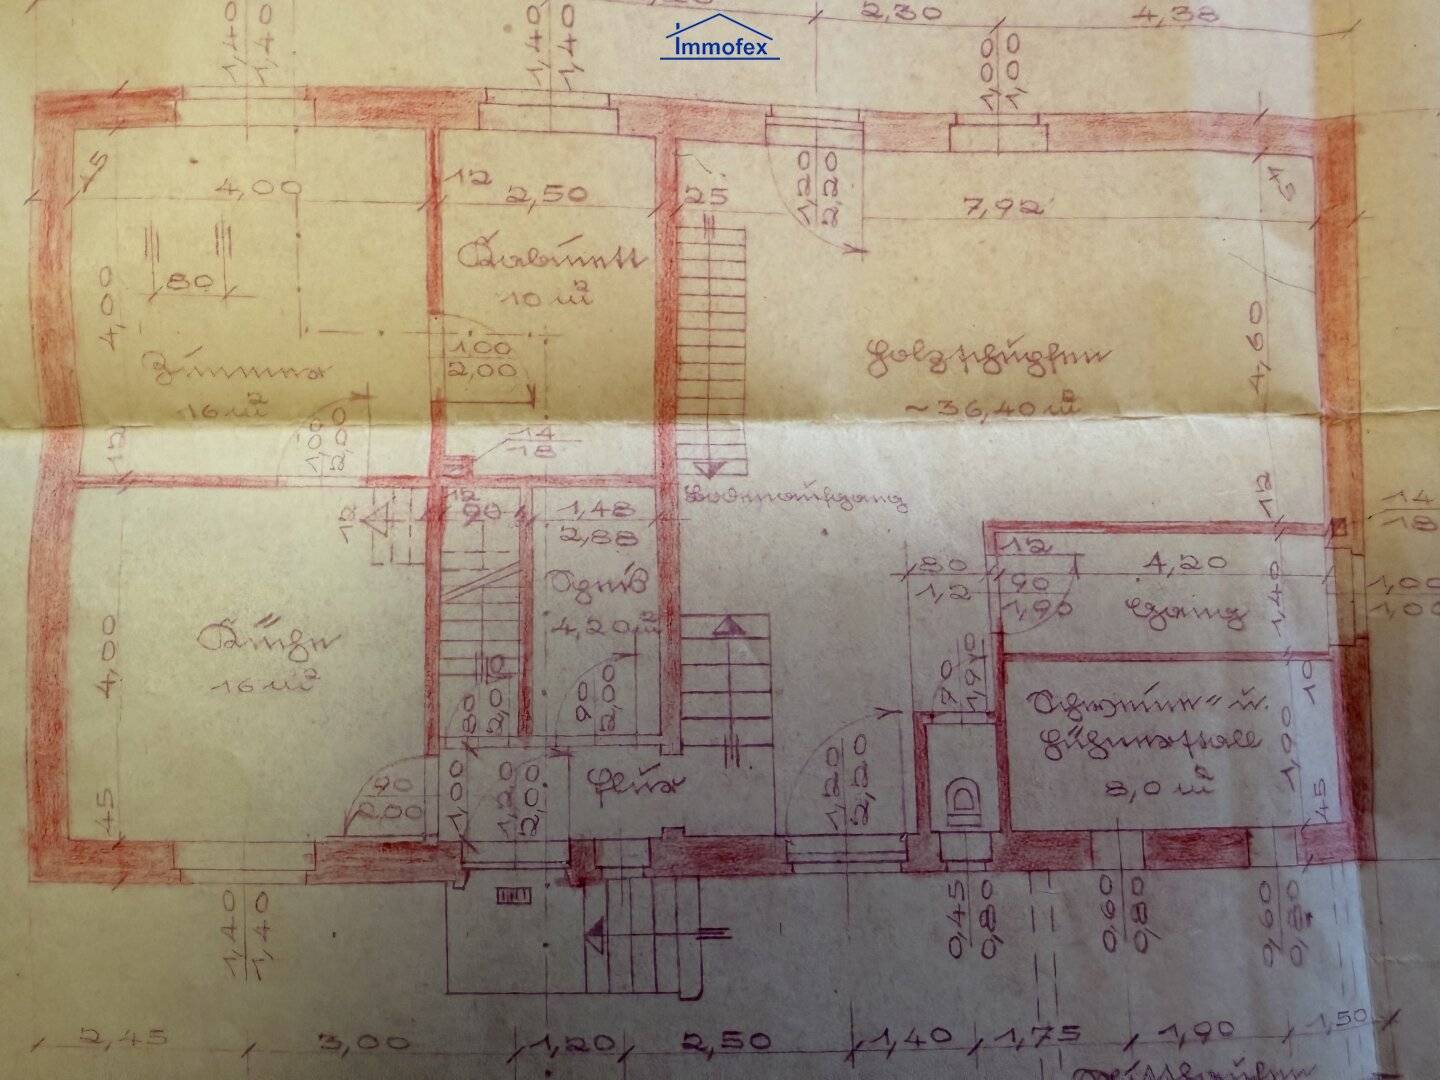 Immofex
2,30
4,38
1,40
1,40
1,40
1,40
1,00
1,00
45
4,00
12
2,50
25
1,20
2,20
7,92
45
80
Kabinett
10 m²
4,00
Zimmer
16 m²
100
2,00
Holzschupfen
~36,40 m²
4,60
12
1,00
2,00
14
18
Bodenaufgang
12
14
18
12
12
90
1,48
2,88
80
1,2
12
90
1,90
4,20
1,40
1,00
1,00
Speis
4,20 m²
Gang
Küche
16 m²
4,00
80
2,00
90
2,00
70
1,90
Schweine- u.
Hühnerstall
8,0 m²
10
1,90
45
45
90
2,00
1,00
1,20
2,00
Flur
1,20
2,20
1,40
1,40
0,45
0,80
0,60
0,80
0,60
0,80
2,45
3,00
1,20
2,50
1,40
1,75
1,90
1,50